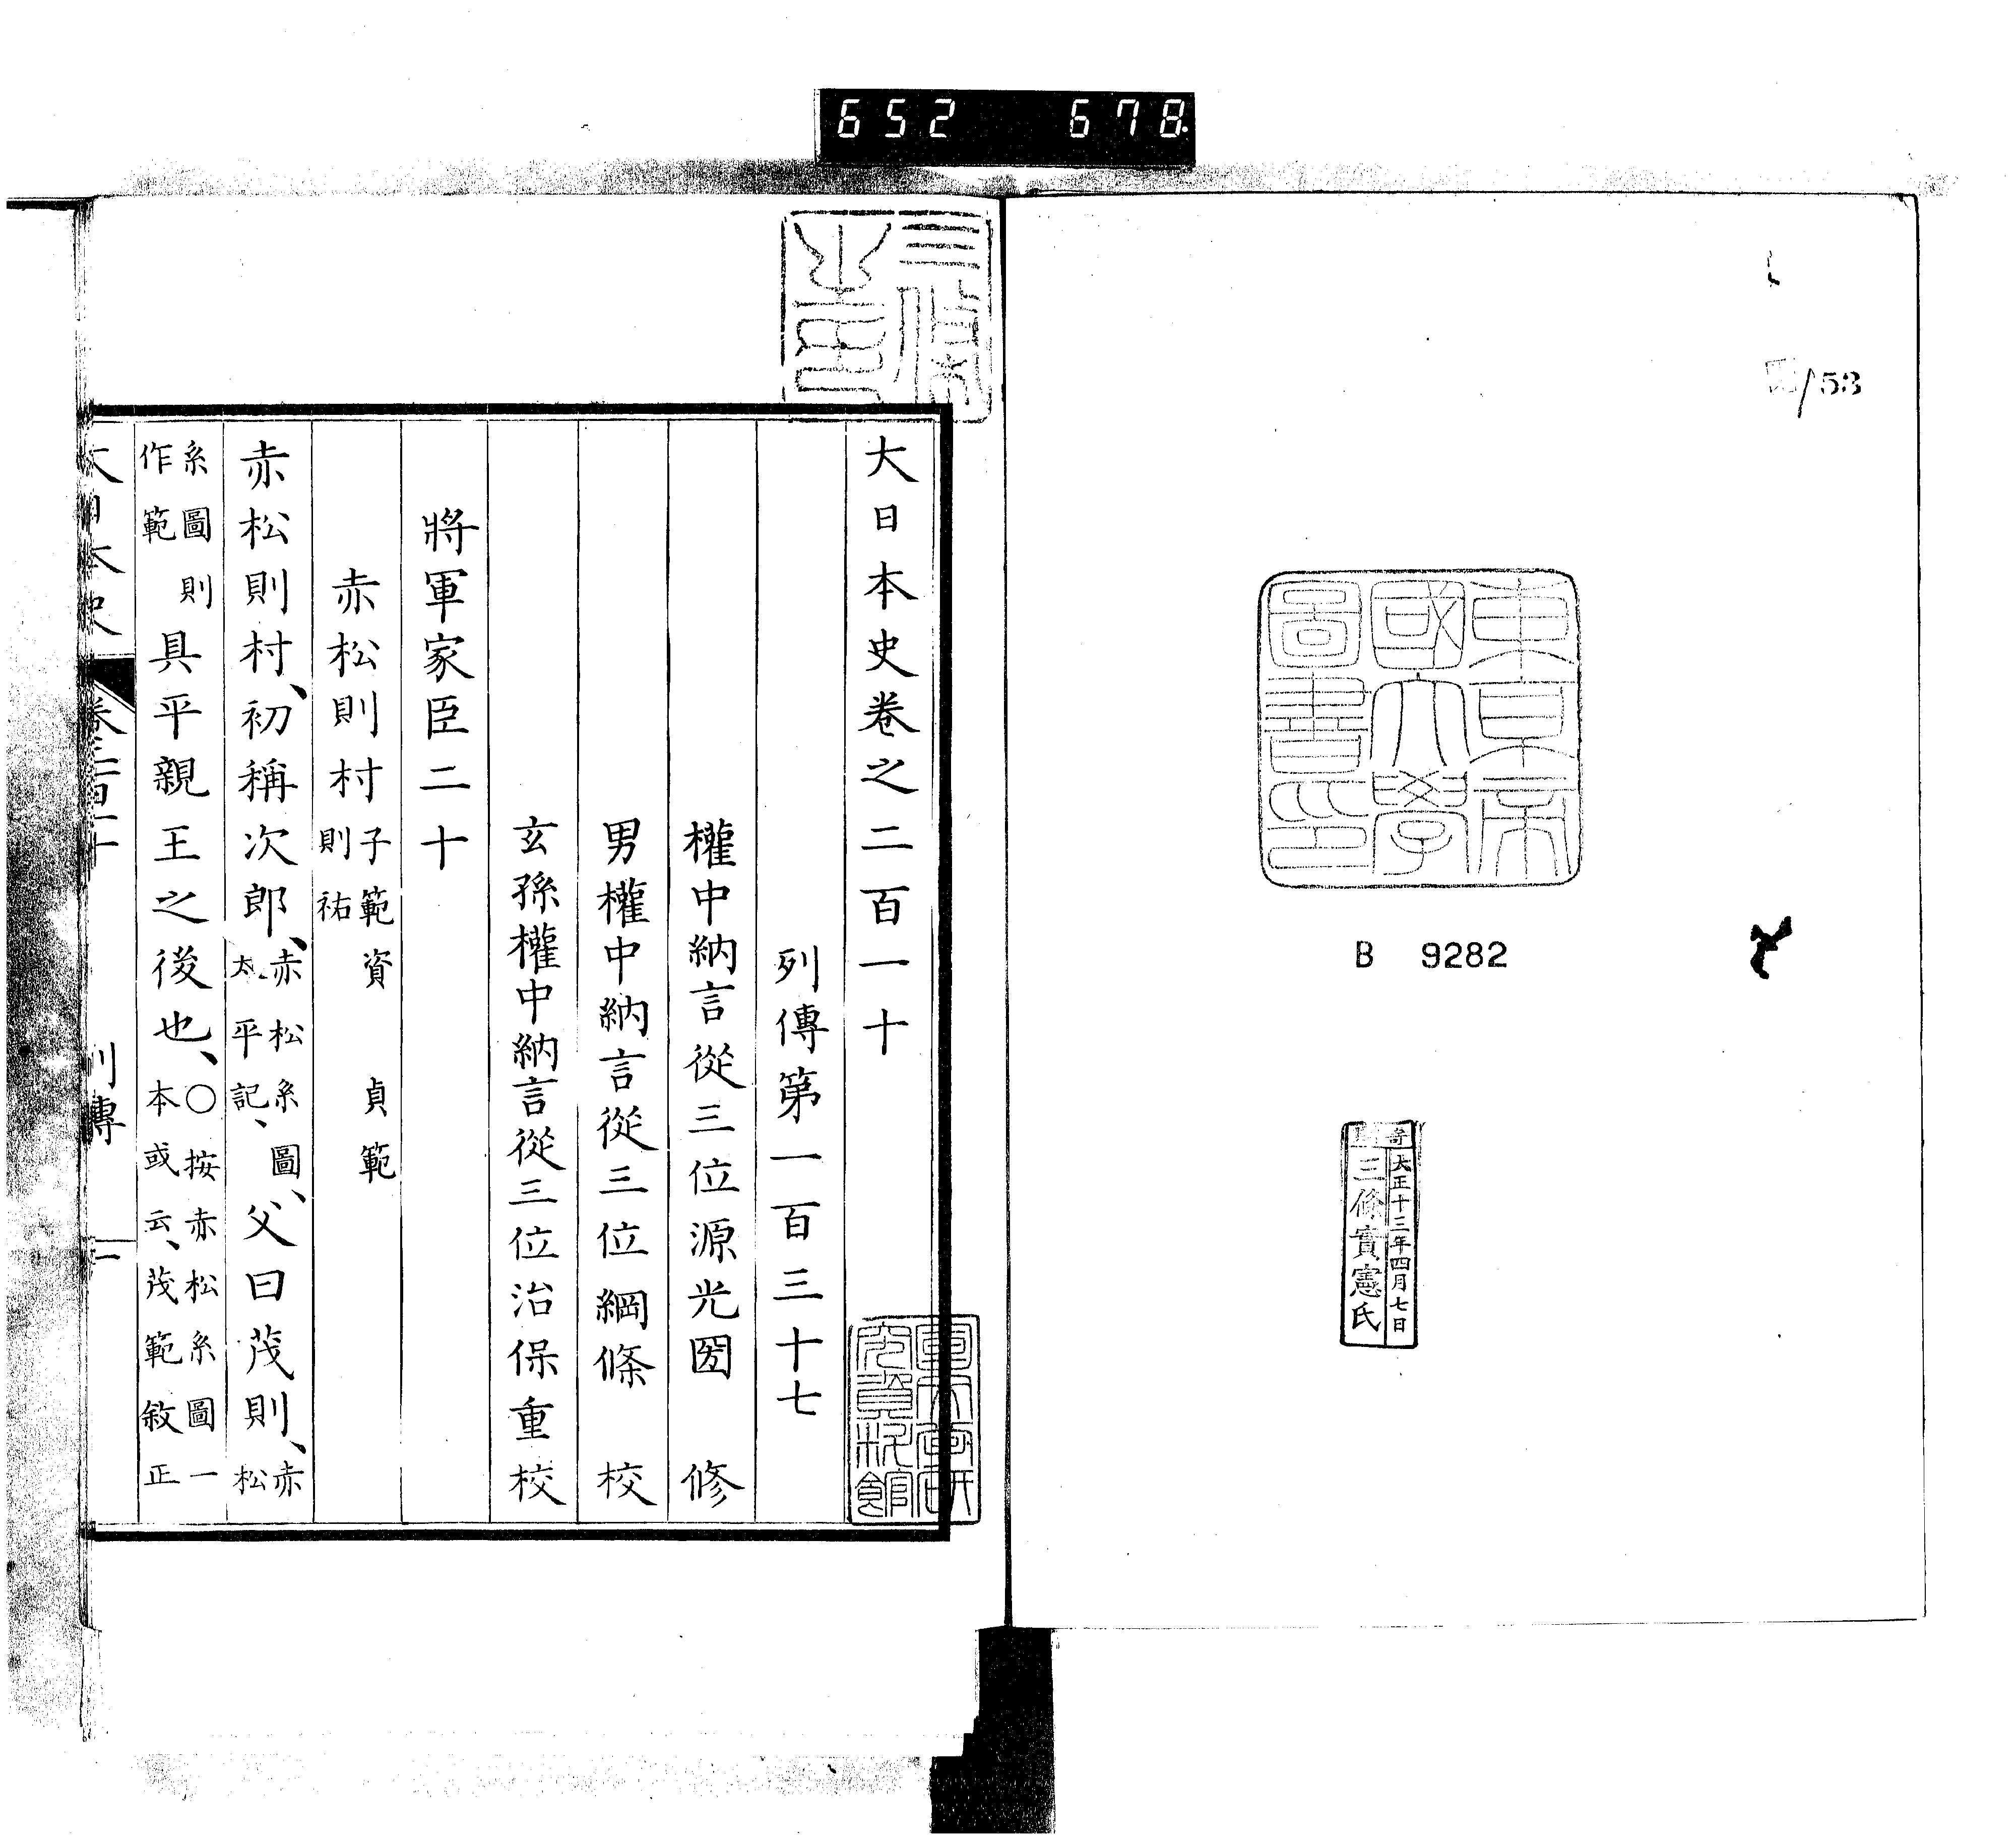 652 678
153
東京帝
國大學
圖書印
B 9282
寄
大正十三年四月七日
三條實憲氏
大日本史卷之二百一十
列傳第一百三十七
權中納言從三位源光圀 修
男權中納言從三位綱條 校
玄孫權中納言從三位治保重校
將軍家臣二十
赤松則村 子範資 貞範 則祐
赤松則村、初稱次郎、赤松系圖、太平記、父曰茂則、赤松
系圖則作範 具平親王之後也、○按赤松系圖一本或云、茂範敘正
大日本史 卷二百一十 列傳 一
國文學研
究資料館